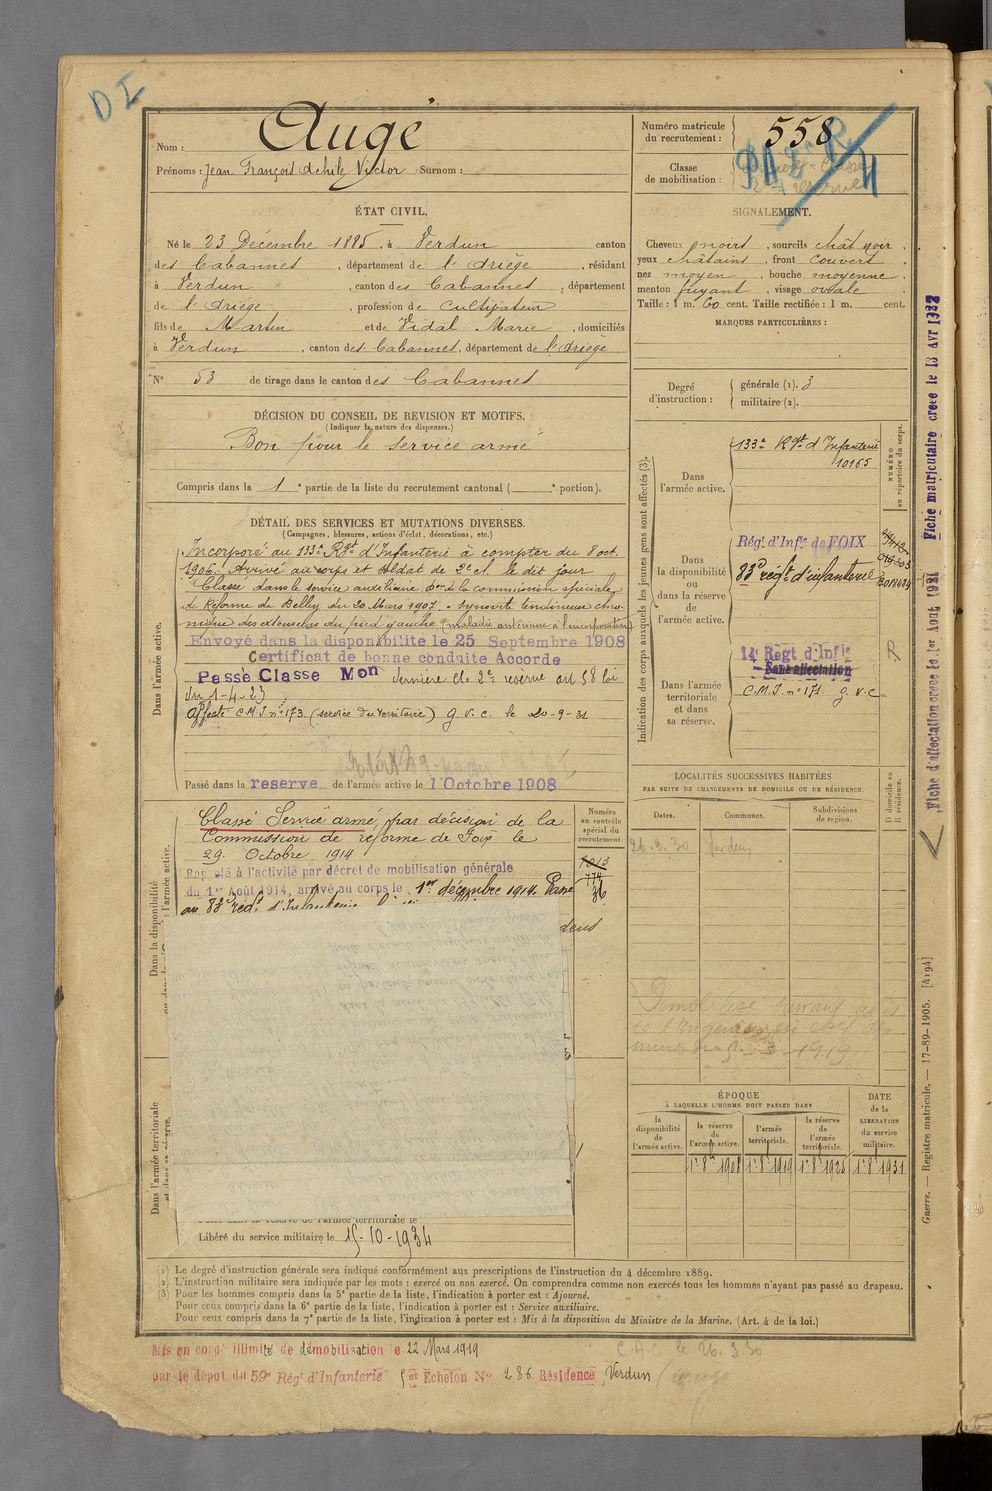 DI
Nom : Augé
Prénoms : Jean François Achile Victor Surnom :
Numéro matricule du recrutement : 558
Classe de mobilisation :
ÉTAT CIVIL.
Né le 23 Décembre 1885, à Verdun canton
des Cabannes, département de l'Ariège, résidant
à Verdun, canton des Cabannes, département
de l'Ariège, profession de Cultivateur
fils de Martin et de Vidal Marie, domiciliés
à Verdun, canton des Cabannes, département de l'Ariège
N° 53 de tirage dans le canton des Cabannes
SIGNALEMENT.
Cheveux noirs, sourcils chât noir.
yeux châtains, front couvert
nez moyen, bouche moyenne.
menton fuyant, visage ovale
Taille : 1 m. 60 cent. Taille rectifiée : 1 m. cent.
MARQUES PARTICULIÈRES :
Degré d'instruction : générale (1). 3
militaire (2).
DÉCISION DU CONSEIL DE REVISION ET MOTIFS.
(Indiquer la nature des dispenses.)
Bon pour le service armé
Compris dans la 1e partie de la liste du recrutement cantonal ( e portion).
DÉTAIL DES SERVICES ET MUTATIONS DIVERSES.
(Campagnes, blessures, actions d'éclat, décorations, etc.)
Dans l'armée active.
Incorporé au 133e Rgt d'Infanterie à compter du 8 oct.
1906. Arrivé au corps et soldat de 2e cl. le dit jour
Classé dans le service auxiliaire par la commission spéciale
de Réforme de Belley du 20 Mars 1907. Synovite tendineuse chro-
nique des extenseurs du pied gauche (maladie antérieure à l'incorporation)
Envoyé dans la disponibilité le 25 Septembre 1908
Certificat de bonne conduite Accordé
Passé Classe Mon dernière Cl. 2e réserve art 58 loi
du 1-4-23
Affecté C.M.I. n° 173. (service du territoire) G.V.C. le 20-9-31
Passé dans la reserve de l'armée active le 1 Octobre 1908
Indication des corps auxquels les jeunes gens sont affectés (3).
Dans l'armée active.
133e Rgt d'Infanterie
10165
NUMÉRO au répertoire du corps.
Dans la disponibilité ou dans la réserve de l'armée active.
Régt d'Infie de FOIX
83e régt d'infanterie
Dans l'armée territoriale et dans sa réserve.
14e Régt d'Infie
Sans affectation
C.M.I. n° 171. G.V.C
Classé Service armé par décision de la
Commission de réforme de Foix le
29 Octobre 1914
Rappelé à l'activité par décret de mobilisation générale
du 1er Août 1914, arrivé au corps le 1er décembre 1914. Passé
au 83e régt d'Infanterie
Numéro au contrôle spécial du recrutement
1013
774
36
Dans l'armée territoriale
Libéré du service militaire le 15-10-1934
LOCALITÉS SUCCESSIVES HABITÉES
PAR SUITE DE CHANGEMENTS DE DOMICILE OU DE RÉSIDENCE.
Dates. Communes. Subdivisions de région. D domicile ou R résidence.
26.3.30 Verdun
ÉPOQUE
À LAQUELLE L'HOMME DOIT PASSER DANS
la disponibilité de l'armée active. la réserve de l'armée active. l'armée territoriale. la réserve de l'armée territoriale. DATE de la LIBÉRATION du service militaire.
1er 8bre 1908 1er 8bre 1919 1er 8bre 1925 1er 8bre 1931
(1) Le degré d'instruction générale sera indiqué conformément aux prescriptions de l'instruction du 4 décembre 1889.
(2) L'instruction militaire sera indiquée par les mots : exercé ou non exercé. On comprendra comme non exercés tous les hommes n'ayant pas passé au drapeau.
(3) Pour les hommes compris dans la 5e partie de la liste, l'indication à porter est : Ajourné.
Pour ceux compris dans la 6e partie de la liste, l'indication à porter est : Service auxiliaire.
Pour ceux compris dans la 7e partie de la liste, l'indication à porter est : Mis à la disposition du Ministre de la Marine. (Art. 4 de la loi.)
Mis en congé illimité de démobilisation le 22 Mars 1919
par le dépôt du 59e Régt d'Infanterie 5er Échelon N° 286 Résidence Verdun
C.A.C. le 26.3.30
Guerre. — Registre matricule. — 17-89-1905. [4194]
Fiche d'affectation créée le 1er Août 1921
Fiche matriculaire créée le 13 Avr 1922